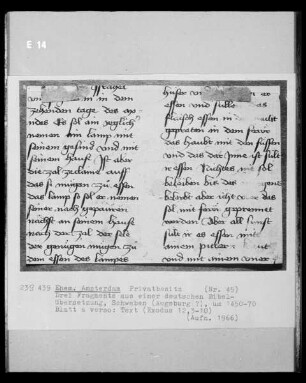 E 14
in dem
zehenden tage des mo
ndes Es sol am yeglich
nemen ein lamp mit
seinem gesind vnd mit
seinem hauß Ist aber
die zal zeclaine auff
das si mügen zu essen
das lamp so sol er nemen
seiner nachgepauren
nächst an seinem hauß
nach der zal der sele
der genügen mügen zu
dem essen des lampes
essen vnd sülle
flaisch essen in nacht
gepraten in dem feure
das haubt mit den füssen
vnd das der Inne ist süllt
ir essen Nichtes mit sol
beleiben biß des
belibt aber icht das
sol mit feüre geprennet
werden Aber also sült
ir es essen mit
vnd mit
239 439 Ehem. Amsterdam Privatbesitz (Nr. 49)
Drei Fragmente aus einer deutschen Bibel-
Übersetzung, Schwaben (Augsburg ?), um 1450-70
Blatt a verso: Text (Exodus 12,3-10)
(Aufn. 1966)